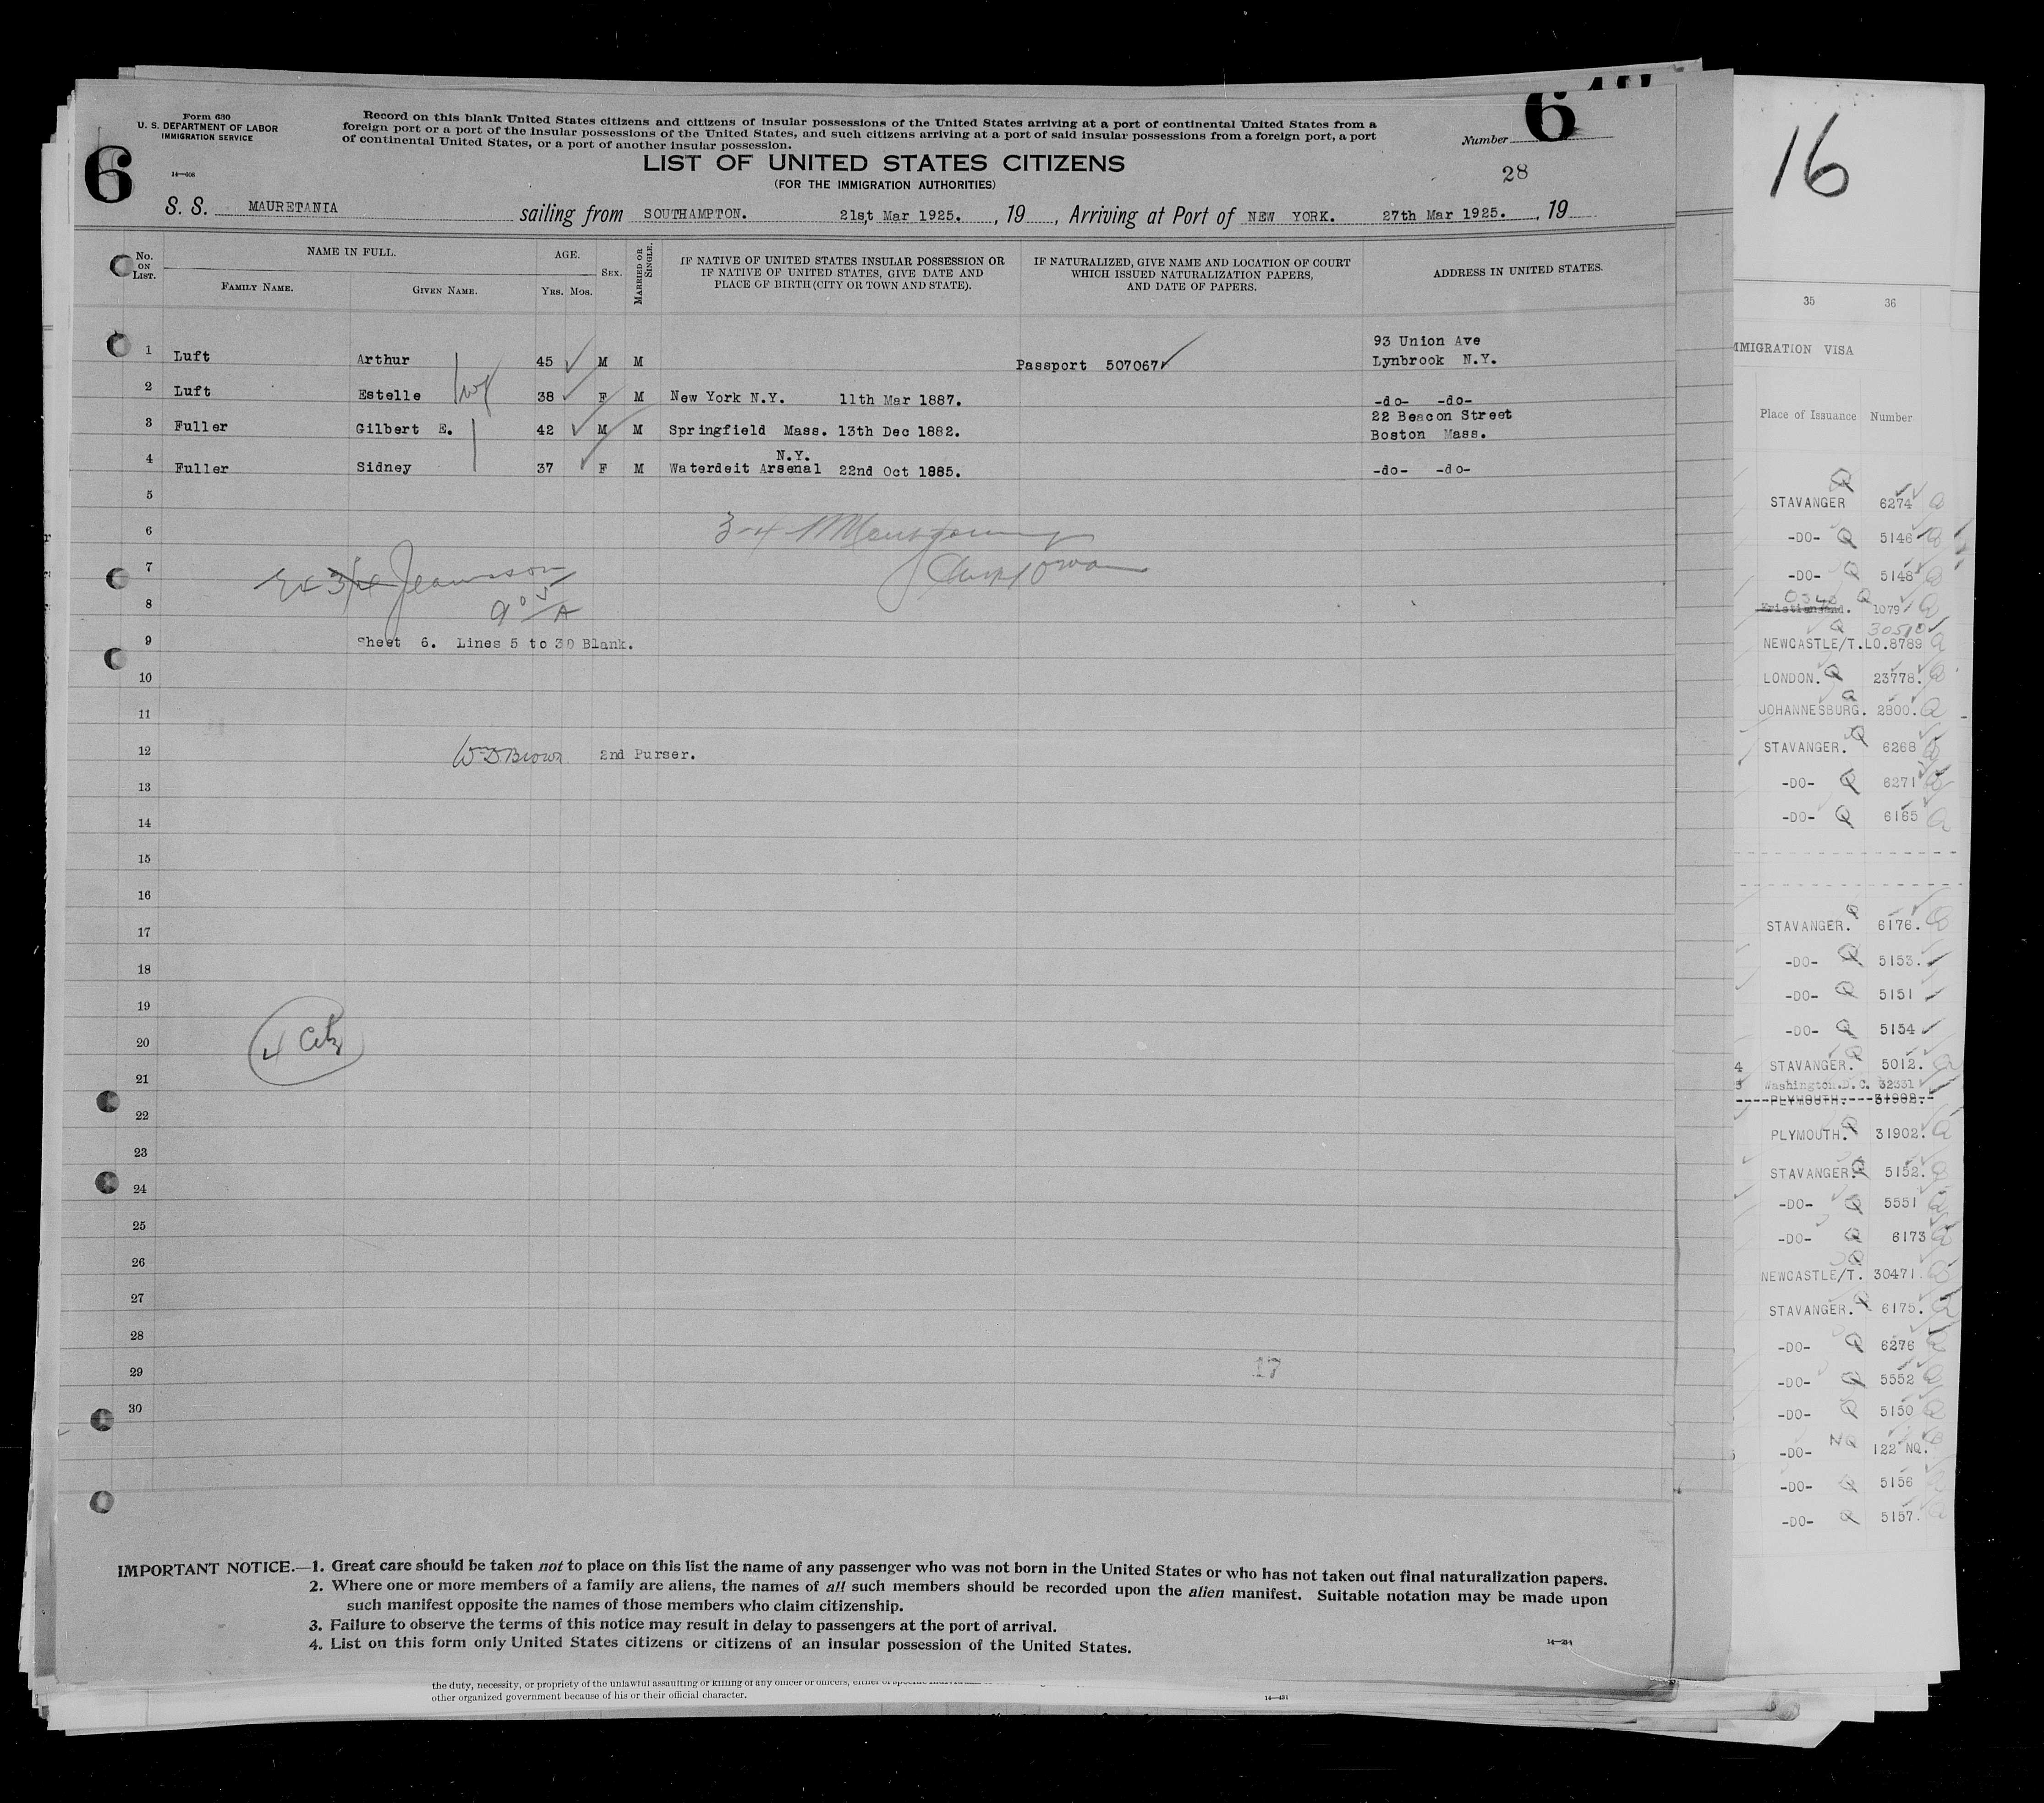 Form 630
U. S. DEPARTMENT OF LABOR
IMMIGRATION SERVICE
14—608
Record on this blank United States citizens and citizens of insular possessions of the United States arriving at a port of continental United States from a
foreign port or a port of the insular possessions of the United States, and such citizens arriving at a port of said insular possessions from a foreign port, a port
of continental United States, or a port of another insular possession.
Number 6
6
LIST OF UNITED STATES CITIZENS
(FOR THE IMMIGRATION AUTHORITIES)
28
S. S. MAURETANIA sailing from SOUTHAMPTON. 21st Mar 1925. , 19 , Arriving at Port of NEW YORK. 27th Mar 1925. , 19
No. ON LIST.
NAME IN FULL.
FAMILY NAME. GIVEN NAME.
AGE.
YRS. MOS.
SEX.
MARRIED OR SINGLE.
IF NATIVE OF UNITED STATES INSULAR POSSESSION OR
IF NATIVE OF UNITED STATES, GIVE DATE AND
PLACE OF BIRTH (CITY OR TOWN AND STATE).
IF NATURALIZED, GIVE NAME AND LOCATION OF COURT
WHICH ISSUED NATURALIZATION PAPERS,
AND DATE OF PAPERS.
ADDRESS IN UNITED STATES.
93 Union Ave
1 Luft Arthur 45 M M Passport 507067 Lynbrook N.Y.
2 Luft Estelle wf 38 F M New York N.Y. 11th Mar 1887. -do- -do-
22 Beacon Street
3 Fuller Gilbert E. 42 M M Springfield Mass. 13th Dec 1882. Boston Mass.
N.Y.
4 Fuller Sidney 37 F M Waterdeit Arsenal 22nd Oct 1885. -do- -do-
5
6
7
8
9 Sheet 6. Lines 5 to 30 Blank.
10
11
12 Wm D Brown 2nd Purser.
13
14
15
16
17
18
19
20 4 Citz
21
22
23
24
25
26
27
28
29 17
30
IMPORTANT NOTICE.—1. Great care should be taken not to place on this list the name of any passenger who was not born in the United States or who has not taken out final naturalization papers.
2. Where one or more members of a family are aliens, the names of all such members should be recorded upon the alien manifest. Suitable notation may be made upon
such manifest opposite the names of those members who claim citizenship.
3. Failure to observe the terms of this notice may result in delay to passengers at the port of arrival.
4. List on this form only United States citizens or citizens of an insular possession of the United States.
14—234
the duty, necessity, or propriety of the unlawful assaulting or killing of any officer or officers,
other organized government because of his or their official character.
14—431
16
35 36
IMMIGRATION VISA
Place of Issuance Number
STAVANGER 6274
-DO- Q 5146
-DO- Q 5148
Kristiansand. 1079
30510
NEWCASTLE/T. LO.8789
LONDON. Q 23778.
JOHANNESBURG. 2800.
STAVANGER. Q 6268
-DO- Q 6271
-DO- Q 6165
STAVANGER. Q 6176.
-DO- Q 5153.
-DO- Q 5151
-DO- Q 5154
4 STAVANGER. Q 5012.
5 Washington.D.C. 32331
PLYMOUTH. 31902.
PLYMOUTH. Q 31902.
STAVANGER. Q 5152.
-DO- Q 5551
-DO- Q 6173
NEWCASTLE/T. 30471.
STAVANGER. Q 6175.
-DO- Q 6276
-DO- Q 5552
-DO- Q 5150
-DO- NQ 122 NQ.
-DO- Q 5156
-DO- Q 5157.